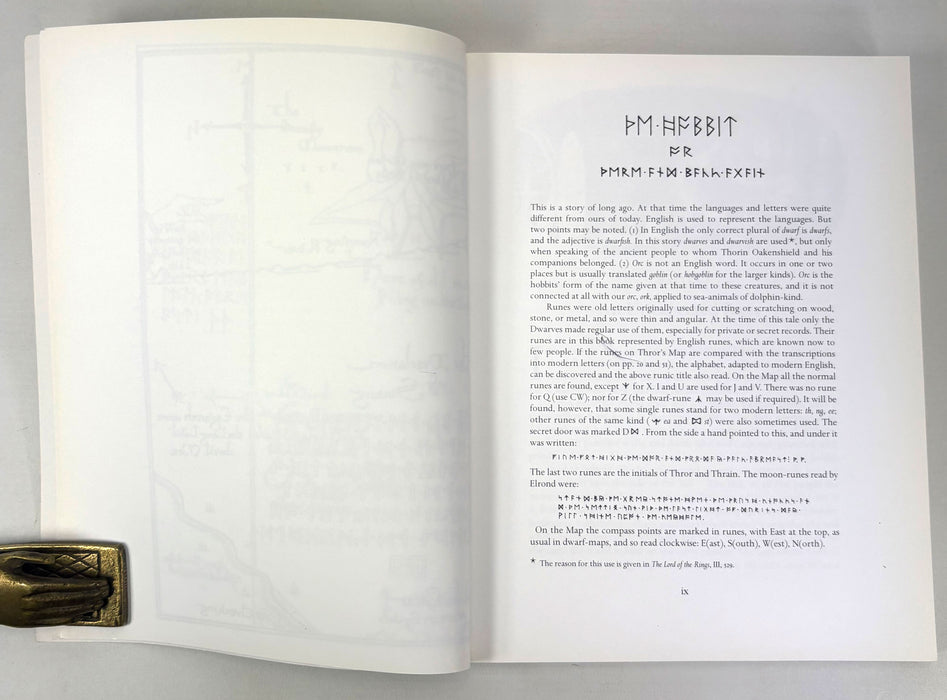 ᚦᛖ·ᚻᚩᛒᛒᛁᛏ
ᚩᚱ
ᚦᛖᚱᛖ·ᚪᚾᛞ· ·ᚪᚷᚪᛁᚾ
This is a story of long ago. At that time the languages and letters were quite
different from ours of today. English is used to represent the languages. But
two points may be noted. (1) In English the only correct plural of dwarf is dwarfs,
and the adjective is dwarfish. In this story dwarves and dwarvish are used*, but only
when speaking of the ancient people to whom Thorin Oakenshield and his
companions belonged. (2) Orc is not an English word. It occurs in one or two
places but is usually translated goblin (or hobgoblin for the larger kinds). Orc is the
hobbits' form of the name given at that time to these creatures, and it is not
connected at all with our orc, ork, applied to sea-animals of dolphin-kind.
Runes were old letters originally used for cutting or scratching on wood,
stone, or metal, and so were thin and angular. At the time of this tale only the
Dwarves made regular use of them, especially for private or secret records. Their
runes are in this book represented by English runes, which are known now to
few people. If the runes on Thror's Map are compared with the transcriptions
into modern letters (on pp. 20 and 51), the alphabet, adapted to modern English,
can be discovered and the above runic title also read. On the Map all the normal
runes are found, except ᛉ for X. I and U are used for J and V. There was no rune
for Q (use CW); nor for Z (the dwarf-rune ᛦ may be used if required). It will be
found, however, that some single runes stand for two modern letters: th, ng, ee;
other runes of the same kind (ᛠ ea and ᛥ st) were also sometimes used. The
secret door was marked D ᛞ. From the side a hand pointed to this, and under it
was written:
The last two runes are the initials of Thror and Thrain. The moon-runes read by
Elrond were:
On the Map the compass points are marked in runes, with East at the top, as
usual in dwarf-maps, and so read clockwise: E(ast), S(outh), W(est), N(orth).
* The reason for this use is given in The Lord of the Rings, III, 529.
ix